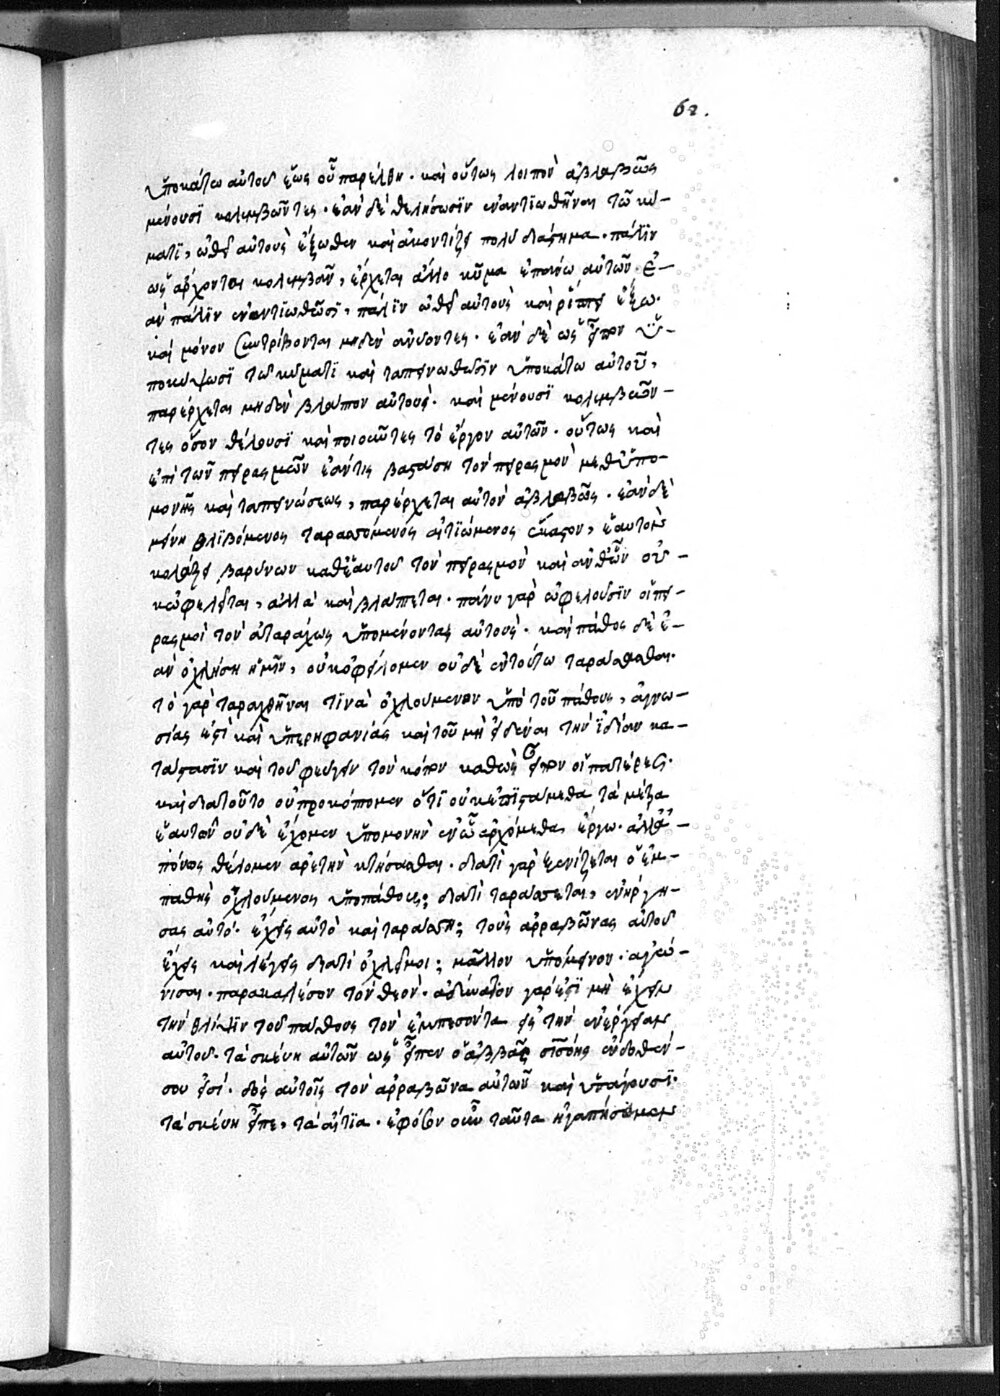 62.
ὑποκάτω αὐτοῦ ἕως οὗ παρέλθη· καὶ οὕτως λοιπὸν ἀβλαβῶς
μένουσϊ κολυμβῶντες· ἐὰν δὲ θελήσωσϊν ἐναντϊωθῆναι τῶ κύ-
ματϊ, ὠθεῖ αὐτοὺς ἔξωθεν καὶ ἀκοντίζει πολὺ διάστημα· πάλϊν
ὡς ἄρχονται κολυμβᾶν, ἔρχεται ἄλλο κῦμα ἐπάνω αὐτῶν· ἐ-
ὰν πάλϊν ἐναντϊωθῶσϊ, πάλϊν ὠθεῖ αὐτοὺς καὶ ρίπτει ἔξω·
καὶ μόνον συντρίβονται μηδὲν ἀνύοντες· ἐὰν δὲ ὡς εἶπον ὑ-
ποκύψωσϊ τῶ κύματϊ καὶ ταπεινωθῶσϊν ὑποκάτω αὐτοῦ,
παρέρχεται μηδὲν βλάπτον αὐτούς· καὶ μένουσϊ κολυμβῶν-
τες ὅσον θέλουσϊ καὶ ποιοῦντες τὸ ἔργον αὐτῶν· οὕτως καὶ
ἐπὶ τῶν πειρασμῶν ἐάν τις βαστάση τὸν πειρασμὸν μεθ' ὑπο-
μονῆς καὶ ταπεινώσεως, παρέρχεται αὐτὸν ἀβλαβῶς· ἐὰν δὲ
μένη θλιβόμενος ταρασσόμενος αἰτϊώμενος ἕκαστον, ἑαυτὸν
κολάζει βαρύνων καθ' ἑαυτοῦ τὸν πειρασμὸν καὶ οὐ-
κ ὠφελεῖται, ἀλλὰ καὶ βλάπτεται· πάνυ γὰρ ὠφελοῦσϊν οἱ πει-
ρασμοὶ τὸν ἀταράχως ὑπομένοντας αὐτούς· καὶ πάθος δὲ ἐ-
ὰν ὀχλήση ἡμῖν, οὐκ ὀφείλομεν οὐδὲ ἐν τούτω ταράσσεσθαι·
τὸ γὰρ ταραχθῆναι τϊνὰ ὀχλούμενον ὑπὸ τοῦ πάθους, ἀγνω-
σίας ἐστὶ καὶ ὑπερηφανίας καὶ τοῦ μὴ εἰδέναι τὴν ἰδίαν κα-
τάστασϊν καὶ τοῦ φεύγειν τὸν κόπον καθὼς εἶπον οἱ πατέρες·
καὶ διατοῦτο οὐ προκόπτομεν ὅτϊ οὐκ ἐπϊστάμεθα τὰ μέτρα
ἑαυτῶν οὐδὲ ἔχομεν ὑπομονὴν ἐν ὧ ἀρχόμεθα ἔργω· ἀλλὰ ἀ-
πόνως θέλομεν ἀρετὴν κτήσασθαι· διατὶ γὰρ ξενίζεται ὁ ἐμ-
παθὴς ὀχλούμενος ὑπὸ πάθους; διατὶ ταράσσεται, ἐνήργη-
σας αὐτό· ἔχεις αὐτὸ καὶ ταράσση; τοὺς ἀρραβῶνας αὐτοῦ
ἔχεις καὶ λέγεις διατί ὀχλεῖ μοι; μᾶλλον ὑπόμεινον· ἀγώ-
νισαι· παρακάλεσον τὸν θεόν· ἀδύνατον γάρ ἐστϊ μὴ ἔχειν
τὴν θλίψϊν τοῦ πάθους τὸν ἐμπεσόντα εἰς τὴν ἐνέργειαν
αὐτοῦ· τὰ σκεύη αὐτῶν ὡς εἶπεν ὁ ἀββᾶς σισόης ἔνδοθέν
σου εἰσί· δὸς αὐτοῖς τὸν ἀρραβῶνα αὐτῶν καὶ ὑπάγουσϊ·
τὰ σκεύη εἶπε, τὰ αἴτϊα· ἐφόσον οὖν ταῦτα ἠγαπήσαμεν